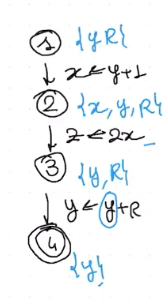 1 {y,R}
↓ x ← y+1
2 {x, y, R}
↓ z ← 2x
3 {y,R}
↓ y ← y+R
4
{y}